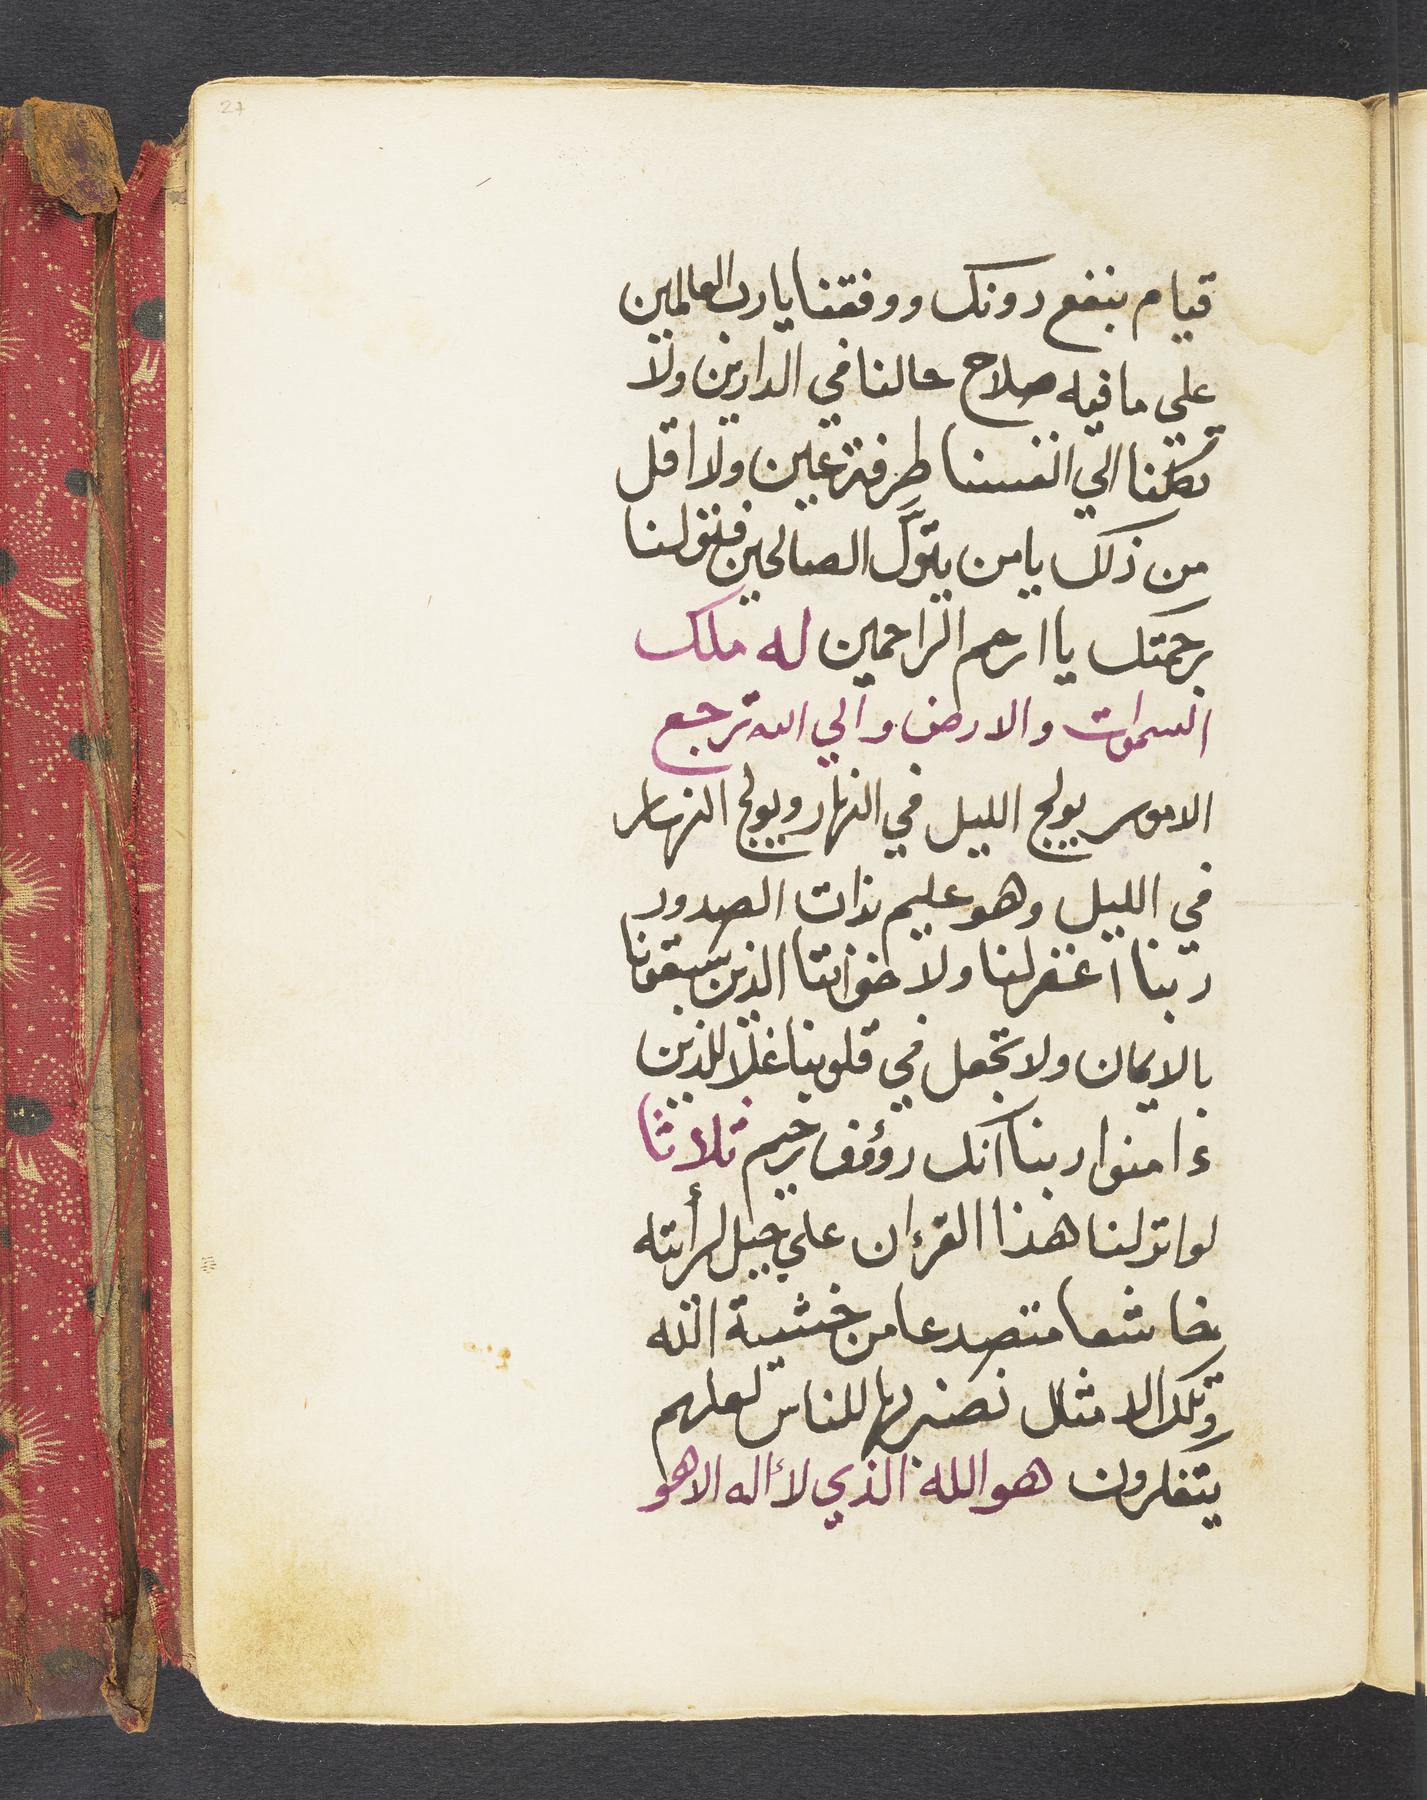 27
قيام بنفع دونك ووفقنا يارب العالمين
علي ما فيه صلاح حالنا في الدارين ولا
تكلنا الي انفسنا طرفة عين ولا اقل
من ذلك يا من يتولّ الصالحين فتولنا
برحمتك يا ارحم الراحمين له ملك
السموات والارض والي الله ترجع
الامور يولج الليل في النهار ويولج النهار
في الليل وهو عليم بذات الصدور
ربنا اغفرلنا ولاخواننا الذين سبقونا
بالايمان ولا تجعل في قلوبنا غلا للذين
ءامنوا ربنا انك رؤف رحيم ثلاثا
لو انزلنا هذا القرءان علي جبل لرأيته
خاشعا متصدعا من خشية الله
وتلك الامثال نضربها للناس لعلهم
يتفكرون هو الله الذي لا اله الا هو